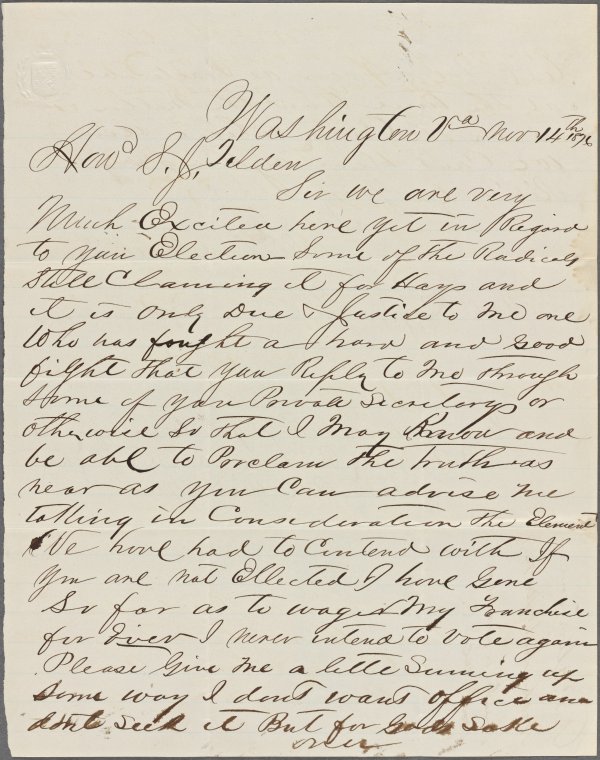 Washington Va Nov 14th 1876
Hond S. J. Tilden
Sir we are very
Much Excited here yet in Regard
to your Election Some of the Radicals
Still Claiming it for Hays and
it is only Due & Justice to Me one
Who has fought a hard and good
fight that you Reply to Me through
Some of your Private Secretorys or
otherwise So that I May Know and
be able to Proclam the truth as
near as you Can advise Me
taking in Consideration the Element
We have had to Contend with If
you are not Ellected I have Gone
So far as to wager My Franchise
for Ever I never intend to vote again
Please Give Me a little Suming up
Some way I dont want office and
dont Seek it But for Gods Sake
over